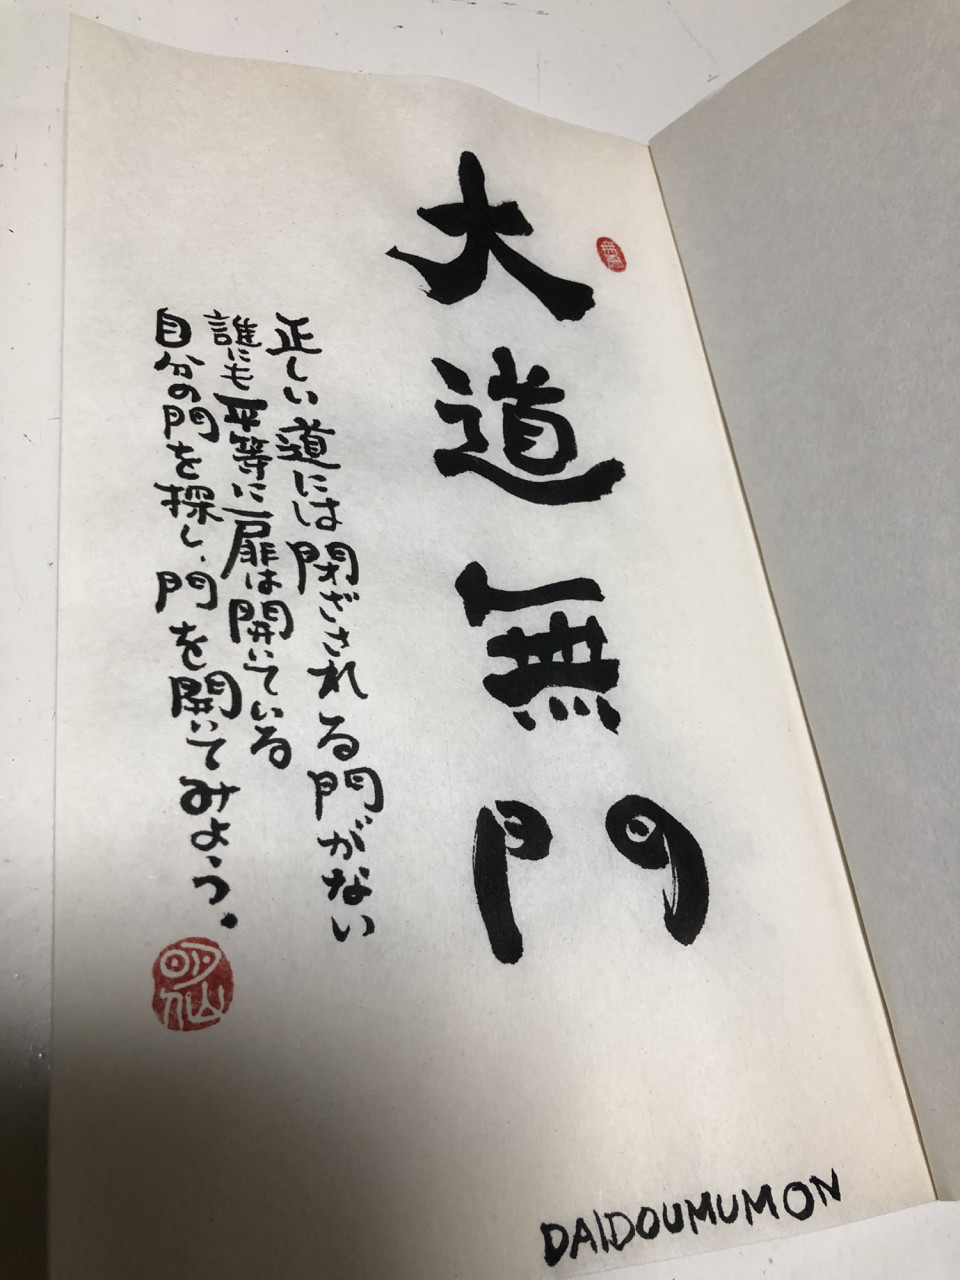 大道無門
正しい道には閉ざされる門がない
誰にも平等に扉は開いている
自分の門を探し、門を開いてみよう。
明仙
DAIDOUMUMON